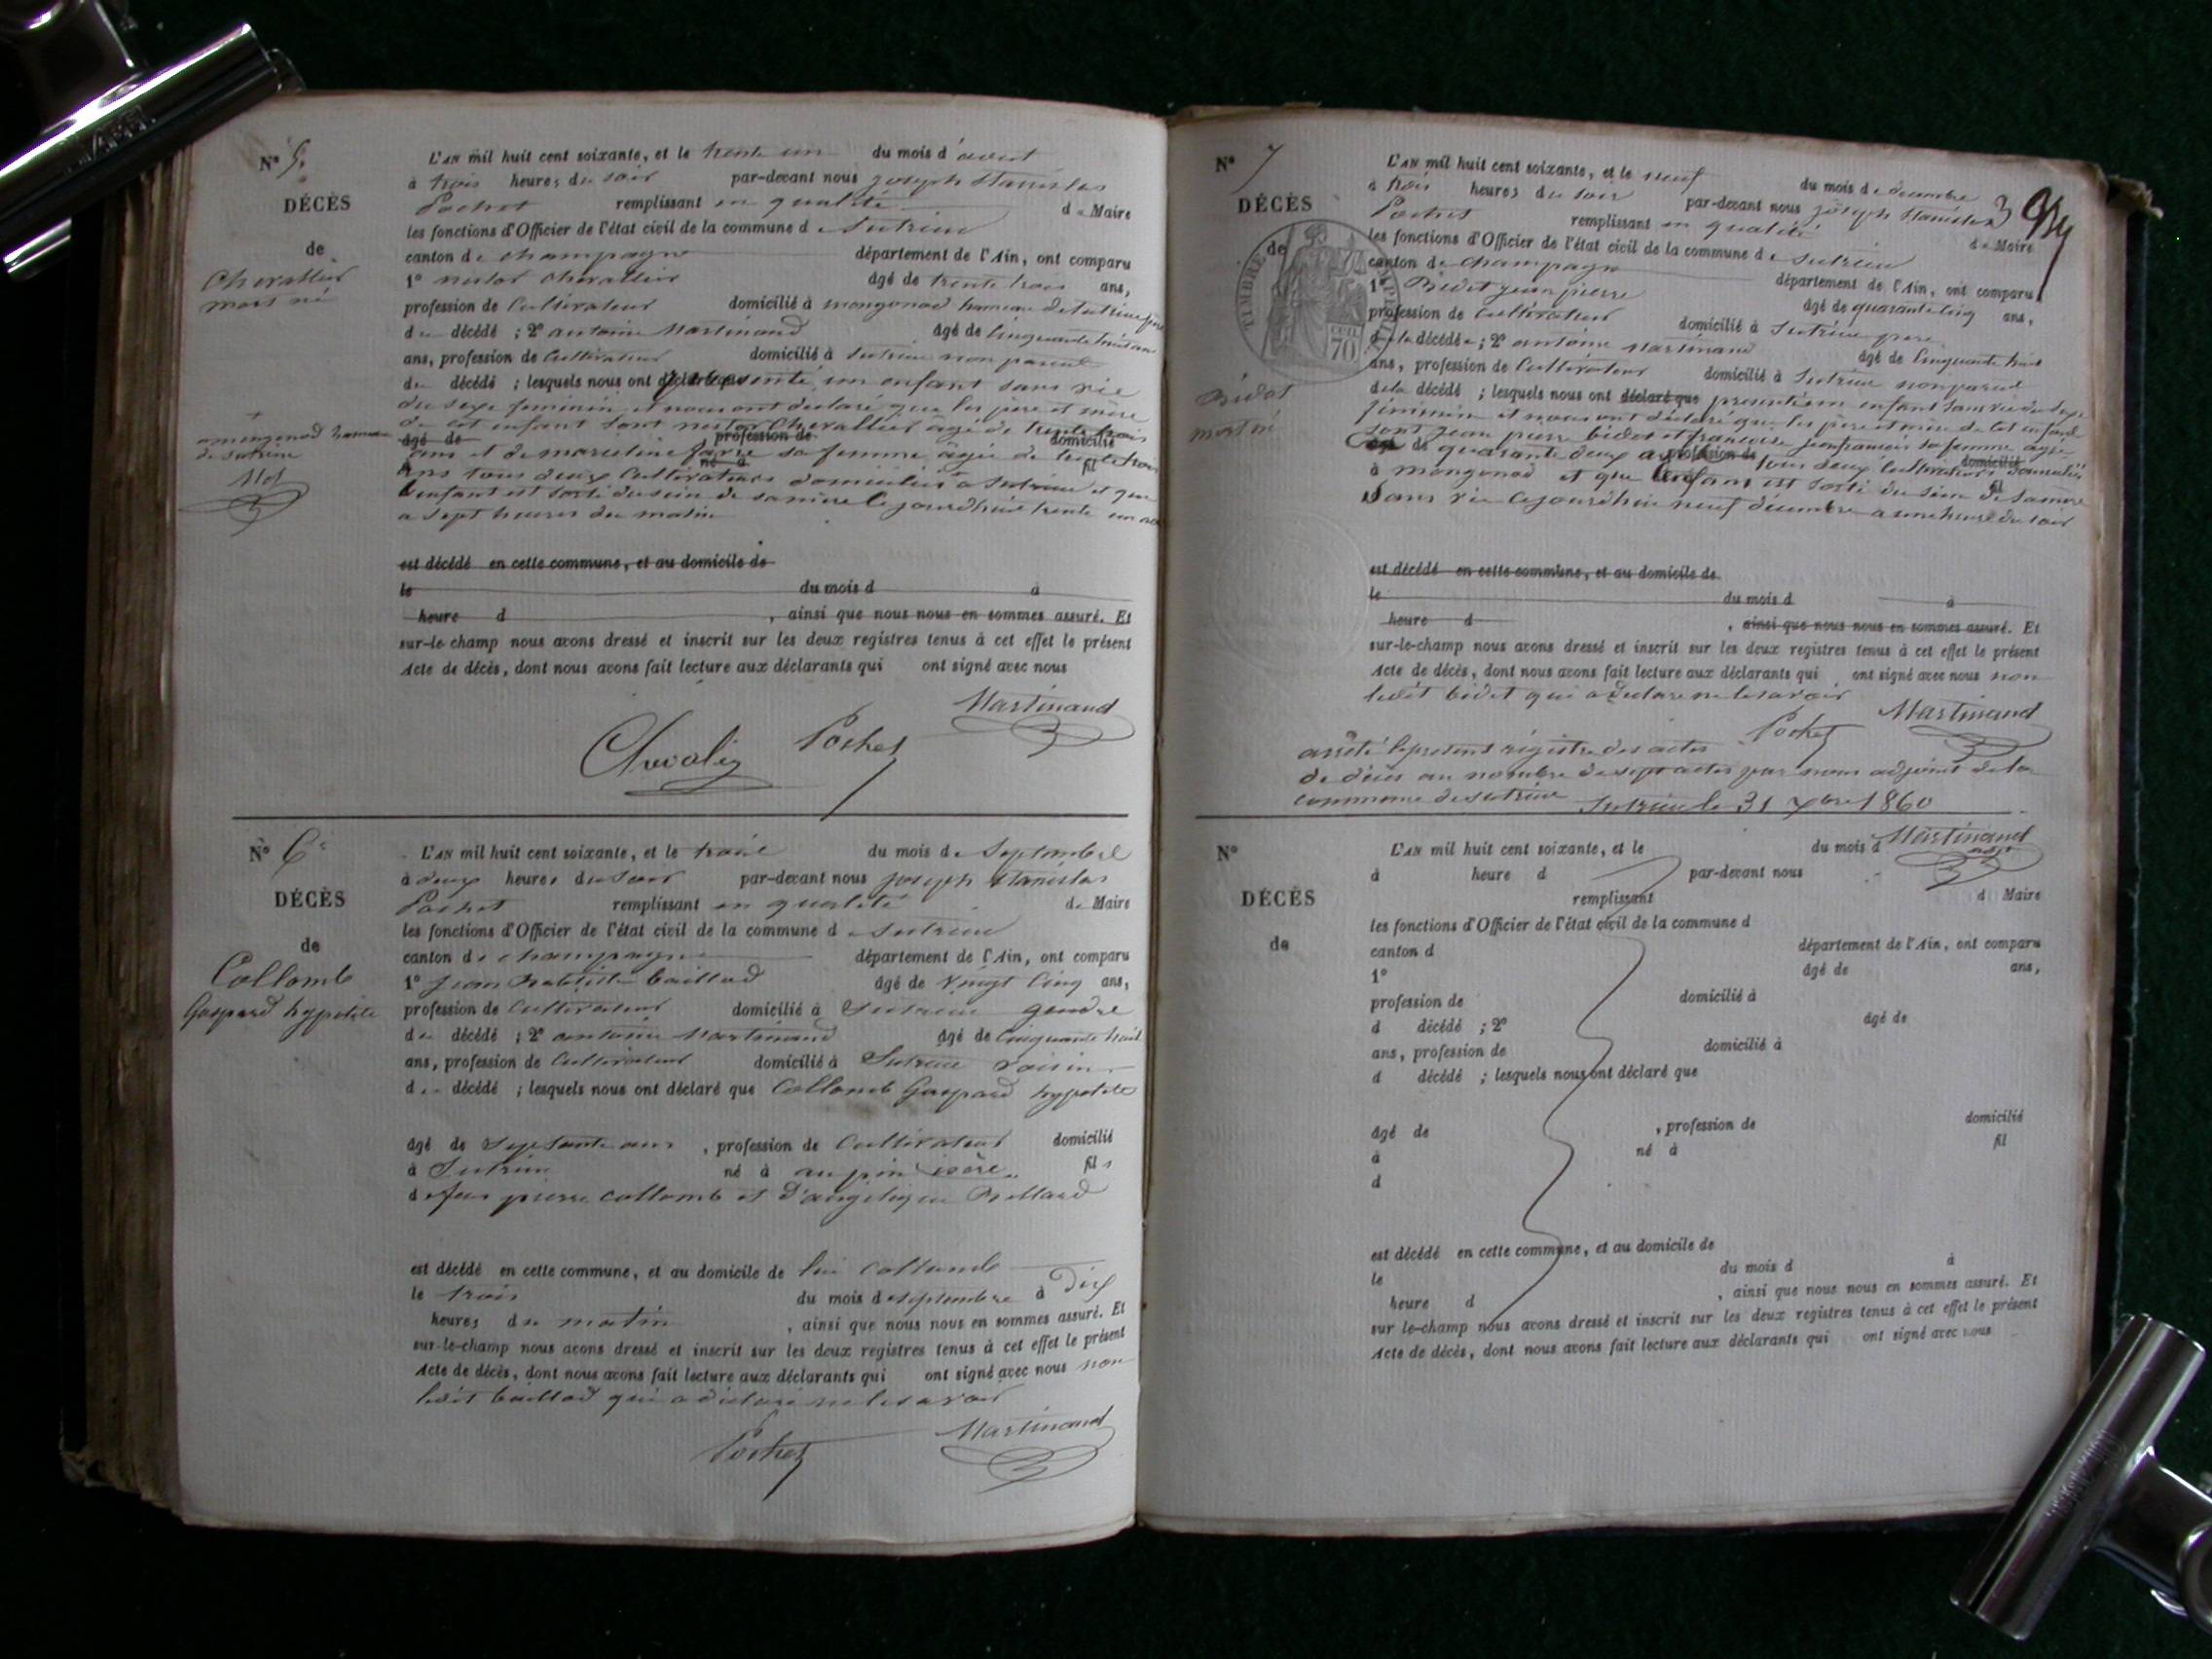 N° 5.
DÉCÈS
de
Chevallier
mort né
a mongonod hameau
de sutrieu
L'AN mil huit cent soixante, et le trente un du mois d'aout
à trois heures du soir par-devant nous joseph Stanislas
Pochet remplissant en qualité de Maire
les fonctions d'Officier de l'état civil de la commune de Sutrieu
canton de champagne département de l'Ain, ont comparu
1° nestor Chevallier âgé de trente trois ans,
profession de Cultivateur domicilié à mongonod hameau de Sutrieu père
du décédé ; 2° antoine Martinand âgé de Cinquante huit ans
ans, profession de Cultivateur domicilié à Sutrieu non parent
du décédé ; lesquels nous ont déclaré que présenté un enfant sans vie
du sexe feminin et nous ont declaré que les père et mère
de cet enfant sont nestor Chevallier âgé de trente trois
âgé de , profession de domicilié
ans et de marceline favre sa femme agée de trente trois
né à fil
ans tous deux Cultivateurs domiciliés a Sutrieu et que
l'enfant est sorti du sein de sa mère le jourdhui trente un
a sept heures du matin
est décédé en cette commune, et au domicile de
le du mois d à
heure d , ainsi que nous nous en sommes assuré. Et
sur-le-champ nous avons dressé et inscrit sur les deux registres tenus à cet effet le présent
Acte de décès, dont nous avons fait lecture aux déclarants qui ont signé avec nous
Martinand
Chevalier Pochet
N° 6
DÉCÈS
de
Collomb
Gaspard hypolite
L'AN mil huit cent soixante, et le trois du mois de Septembre
à deux heures du soir par-devant nous joseph Stanislas
Pochet remplissant en qualité de Maire
les fonctions d'Officier de l'état civil de la commune de Sutrieu
canton de champagne département de l'Ain, ont comparu
1° Jean Baptiste baillod âgé de Vingt Cinq ans,
profession de Cultivateur domicilié à Sutrieu gendre
du décédé ; 2° antoine Martinand âgé de Cinquante huit
ans, profession de Cultivateur domicilié à Sutrieu voisin
du décédé ; lesquels nous ont déclaré que Collomb Gaspard hypolite
âgé de Septante ans , profession de Cultivateur domicilié
à Sutrieu né à au pin isère fils
de feu pierre collomb et D'angelique
est décédé en cette commune, et au domicile de lui collomb
le trois du mois de septembre à Dix
heures du matin , ainsi que nous nous en sommes assuré. Et
sur-le-champ nous avons dressé et inscrit sur les deux registres tenus à cet effet le présent
Acte de décès, dont nous avons fait lecture aux déclarants qui ont signé avec nous non
ledit baillod qui a déclaré ne le savoir
Pochet Martinand
N° 7
DÉCÈS
de
Bidot
mort né
TIMBRE IMPÉRIAL
70
L'AN mil huit cent soixante, et le neuf du mois de decembre
à trois heures du soir par-devant nous joseph Stanislas
Pochet remplissant en qualité de Maire
les fonctions d'Officier de l'état civil de la commune de Sutrieu
canton de champagne département de l'Ain, ont comparu
1° Bidot jean pierre âgé de quarante cinq ans,
profession de Cultivateur domicilié à Sutrieu père
de la décédée ; 2° antoine Martinand âgé de Cinquante huit
ans, profession de Cultivateur domicilié à Sutrieu non parent
de la décédé ; lesquels nous ont déclaré que presenté un enfant sans vie du sexe
féminin et nous ont déclaré que les père et mère de cet enfant
sont jean pierre bidot et francoise jeanfrancois sa femme agée
âgé de quarante deux ans profession de tous deux Cultivateurs domicilié domiciliés
à mongonod et que l'enfant est sorti du sein de sa mère
Sans vie Cejourdhui neuf décembre a une heure du soir
est décédé en cette commune, et au domicile de
le du mois d à
heure d , ainsi que nous nous en sommes assuré. Et
sur-le-champ nous avons dressé et inscrit sur les deux registres tenus à cet effet le présent
Acte de décès, dont nous avons fait lecture aux déclarants qui ont signé avec nous non
ledit bidot qui a déclaré ne le savoir
Pochet Martinand
arrêté le présent régistre des actes
de décès au nombre de sept actes par nous adjoint de la
commune de sutrieu Sutrieu le 31 xbre 1860
Martinand
adjt
N°
DÉCÈS
de
L'AN mil huit cent soixante, et le du mois d
à heure d par-devant nous
remplissant d Maire
les fonctions d'Officier de l'état civil de la commune d
canton d département de l'Ain, ont comparu
1° âgé de ans,
profession de domicilié à
d décédé ; 2° âgé de
ans, profession de domicilié à
d décédé ; lesquels nous ont déclaré que
âgé de , profession de domicilié
à né à fil
d
est décédé en cette commune, et au domicile de
le du mois d à
heure d , ainsi que nous nous en sommes assuré. Et
sur le-champ nous avons dressé et inscrit sur les deux registres tenus à cet effet le présent
Acte de décès, dont nous avons fait lecture aux déclarants qui ont signé avec nous